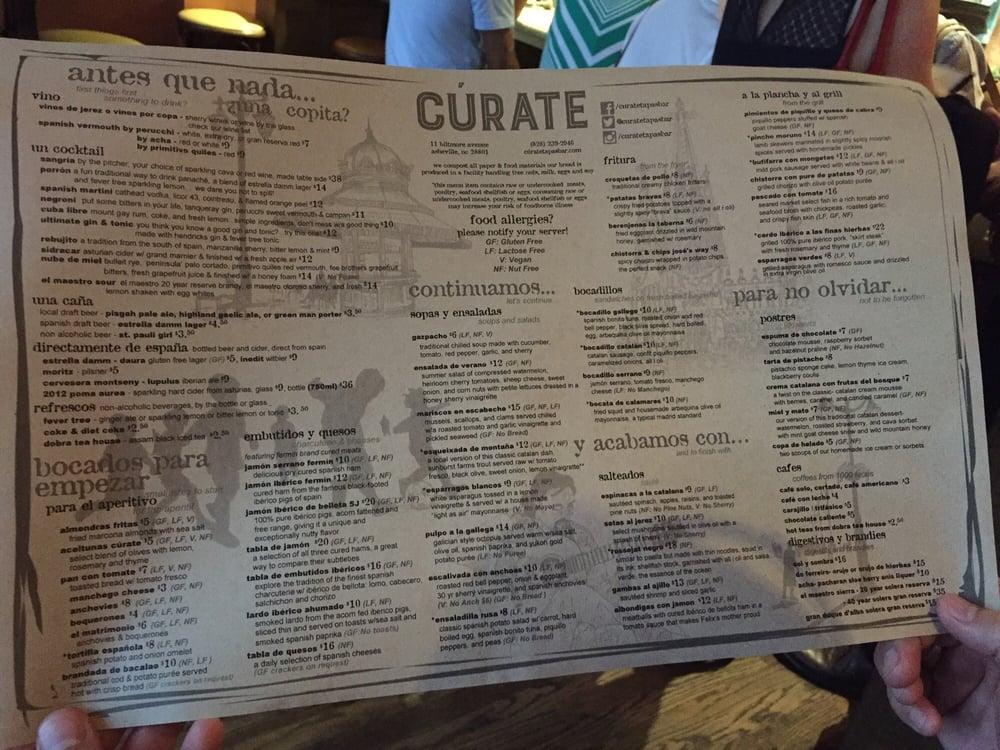 antes que nada...
first things first
something to drink?
una copita?
vino
vinos de jerez o vinos por copa - sherry wines or wine by the glass
check our wine list
spanish vermouth by perucchi - white, extra-dry, or gran reserva red $7
by acha - red or white $9
by primitivo quiles - red $9
un cocktail
sangria by the pitcher, your choice of sparkling cava or red wine, made table side $38
porrón a fun traditional way to drink panaché, a blend of estrella damm lager $14
and fever tree sparkling lemon... we dare you not to spill!
spanish martini cathead vodka, licor 43, cointreau, & flamed orange peel $12
negroni put some bitters in your life, tanqueray gin, perucchi sweet vermouth & campari $11
cuba libre mount gay rum, coke, and fresh lemon, simple ingredients, don't mess w/a good thing $10
ultimate gin & tonic you think you know a good gin and tonic?... try this one! $12
made with hendricks gin & fever tree tonic
rebujito a tradition from the south of spain, manzanilla sherry, bitter lemon & mint $9
sidracar asturian cider w/ grand marnier & finished w/ a fresh apple air $12
nube de miel bulleit rye, peninsula palo cortado, primitivo quiles red vermouth, fee brothers grapefruit
bitters, fresh grapefruit juice & finished w/ a honey foam $14
el maestro sour el maestro 20 year reserve brandy, el maestro oloroso sherry, and fresh $14
lemon shaken with egg whites
una caña
local draft beer - pisgah pale ale, highland gaelic ale, or green man porter $3.50
spanish draft beer - estrella damm lager $4.50
non alcoholic beer - st. pauli girl $3.50
directamente de españa bottled beer and cider, direct from spain
estrella damm - daura gluten free lager (GF) $5, inedit witbier $9
moritz - pilsner $5
cervesera montseny - lupulus iberian ale $9
2012 poma aurea - sparkling hard cider from asturias, glass $9, bottle (750ml) $36
refrescos non-alcoholic beverages, by the bottle or glass
fever tree - ginger ale or sparkling lemon or bitter lemon or tonic $3.50
coke & diet coke $2.50
dobra tea house - assam black iced tea $2.50
bocados para
empezar
small bites to start
para el aperitivo
almendras fritas $5 (GF, LF, V)
fried marcona almonds with sea salt
aceitunas cúrate $5 (GF, LF, V, NF)
select blend of olives with lemon,
rosemary and thyme
pan con tomate $7 (LF, V, NF)
toasted bread w/ tomato fresco
manchego cheese $3 (GF, NF)
anchovies $8 (GF, LF, NF)
boquerones $4 (GF, LF, NF)
el matrimonio $6 (GF, LF, NF)
anchovies & boquerones
*tortilla española $8 (LF, NF)
spanish potato and onion omelet
brandada de bacalao $10 (NF, LF)
traditional cod & potato purée served
hot with crisp bread (GF crackers on request)
embutidos y quesos
charcuterie & cheeses
featuring fermin brand cured meats
jamón serrano fermin $10 (GF, LF, NF)
delicious dry cured spanish ham
jamón ibérico fermin $12 (GF, LF, NF)
cured ham from the famous black-footed
ibérico pigs of spain
jamón ibérico de bellota 5J $20 (GF, LF, NF)
100% pure ibérico pigs, acorn fattened and
free range, giving it a unique and
exceptionally nutty flavor
tabla de jamón $20 (GF, LF, NF)
a selection of all three cured hams, a great
way to compare their subtleties
tabla de embutidos ibéricos $16 (GF, NF)
explore the tradition of the finest spanish
charcuterie w/ ibérico de bellota: lomo, cabecero,
salchichon and chorizo
lardo ibérico ahumado $10 (LF, NF)
smoked lardo from the acorn fed ibérico pigs,
sliced thin and served on toasts w/sea salt and
smoked spanish paprika (GF: No toasts)
tabla de quesos $16 (NF)
a daily selection of spanish cheeses
(GF crackers on request)
CÚRATE
11 biltmore avenue
asheville, nc 28801
(828) 239-2946
curatetapasbar.com
we compost all paper & food materials our bread is
produced in a facility handling tree nuts, milk, eggs and soy
*this menu item contains raw or undercooked meats,
poultry, seafood shellfish or eggs, consuming raw or
undercooked meats, poultry, seafood shellfish or eggs
may increase your risk of foodborne illness
food allergies?
please notify your server!
GF: Gluten Free
LF: Lactose Free
V: Vegan
NF: Nut Free
continuamos...
let's continue
sopas y ensaladas
soups and salads
gazpacho $6 (LF, NF, V)
traditional chilled soup made with cucumber,
tomato, red pepper, garlic, and sherry
ensalada de verano $12 (GF, NF)
summer salad of compressed watermelon,
heirloom cherry tomatoes, sheep cheese, sweet
onion, and corn nuts with petite lettuces dressed in a
honey sherry vinaigrette
mariscos en escabeche $15 (GF, NF, LF)
mussels, scallops, and clams served chilled
w/s roasted tomato and garlic vinaigrette and
pickled seaweed (GF: No Bread)
*esqueixada de montaña $12 (GF, LF, NF)
a local version of this classic catalan dish,
sunburst farms trout served raw w/ tomato
fresco, black olive, sweet onion, lemon vinaigrette
*esparragos blancos $9 (GF, LF, NF)
white asparagus tossed in a lemon
vinaigrette & served w/ a house made
"light as air" mayonnaise (V: No Mayo)
pulpo a la gallega $14 (GF, NF)
galician style octopus served warm w/sea salt,
olive oil, spanish paprika, and yukon gold
potato purée (LF: No Puree)
escalivada con anchoas $10 (LF, NF)
roasted red bell pepper, onion & eggplant,
30 yr sherry vinaigrette, and spanish anchovies
(V: No Anch $6) (GF: No Bread)
*ensaladilla rusa $8 (LF, NF)
classic spanish potato salad w/ carrot, hard
boiled egg, spanish bonito tuna, piquillo
peppers, and peas (GF: No Bread)
/curatetapasbar
/curatetapasbar
/curatetapasbar
fritura
from the fryer
croquetas de pollo $8 (NF)
traditional creamy chicken fritters
*patatas bravas $8 (LF, NF)
crispy fried potatoes topped with a
slightly spicy "brava" sauce (V: no ali i oli)
berenjenas la taberna $6 (NF)
fried eggplant drizzled in wild mountain
honey, garnished w/ rosemary
chistorra & chips josé's way $8
spicy chorizo wrapped in potato chips,
the perfect snack (NF)
bocadillos
sandwiches on fresh baked baguette
*bocadillo gallego $10 (LF, NF)
spanish bonito tuna, roasted onion and red
bell pepper, black olive spread, hard boiled
egg, arbequina olive oil
*bocadillo catalán $10 (LF, NF)
catalan sausage, confit piquillo peppers,
caramelized onions, ali i oli
bocadillo serrano $9 (NF)
jamón serrano, tomato fresco, manchego
cheese (LF: No Manchego)
*bocata de calamares $10 (NF)
fried squid and housemade arbequina olive oil
mayonnaise, a typical madrid standard
y acabamos con...
and to finish with
salteados
sauté
espinacas a la catalana $9 (GF, LF)
sautéed spinach, apples, raisins, and toasted
pine nuts (NF: No Pine Nuts, V: No Sherry)
setas al jerez $10 (GF, LF, NF)
select mushrooms sautéed in olive oil with a
splash of sherry (V: No Sherry)
*rossejat negro $18 (NF)
similar to paella but made with thin noodles, squid in
its ink, shellfish stock, garnished with ali i oli and salsa
verde, the essence of the ocean
gambas al ajillo $13 (GF, LF, NF)
sautéed shrimp and sliced garlic
albondigas con jamon $12 (LF, NF)
meatballs w/the cured ibérico de bellota ham in a
tomato sauce that makes Felix's mother proud
a la plancha y al grill
from the grill
pimientos de piquillo y queso de cabra $9
piquillo peppers stuffed w/ spanish
goat cheese (GF, NF)
*pincho moruno $14 (LF, GF, NF)
lamb skewers marinated in slightly spicy moorish
spices served with homemade pickles
*butifarra con mongetes $12 (LF, GF, NF)
mild pork sausage served with white beans & ali i oli
chistorra con pure de patatas $9 (GF, NF)
grilled chorizo with olive oil potato purée
pescado con tomate $16
seared market select fish in a rich tomato and
seafood broth with chickpeas, roasted garlic,
and crispy fish skin (LF, GF, NF)
*cerdo ibérico a las finas hierbas $22
grilled 100% pure ibérico pork, "skirt steak"
with fresh rosemary and thyme (LF, GF, NF)
esparragos verdes $8 (LF, V)
grilled asparagus with romesco sauce and drizzled
in extra virgin olive oil
para no olvidar...
not to be forgotten...
postres
espuma de chocolate $7 (GF)
chocolate mousse, raspberry sorbet
and hazelnut praline (NF, No Hazelnut)
tarta de pistacho $8
pistachio sponge cake, lemon thyme ice cream,
blackberry coulis
crema catalana con frutas del bosque $7
a twist on the classic catalan cream mousse
with berries, caramel, and candied caramel (GF, NF)
miel y mato $7 (GF, NF)
our version of this traditional catalan dessert-
watermelon, roasted strawberry, and cava sorbet
with mint goat cheese snow and wild mountain honey
copa de helado $5 (GF, NF)
two scoops of our homemade ice cream or sorbets
cafes
coffees from 1000 faces
café solo, cortado, café americano $3
café con leche $4
carajillo / trifásico $5
chocolate caliente $5
hot teas from dobra tea house $2.50
digestivs y brandies
digestivs and brandies
sol y sombra $15
do ferreiro- orujo or orujo de hierbas $15
acha- pacharan sloe berry anis liquer $10
el maestro sierra - 20 year solera reserva $15
- 40 year solera gran reserva $35
gran duque d'alba solera gran reserva $15